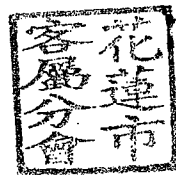 花蓮市
客屬分會